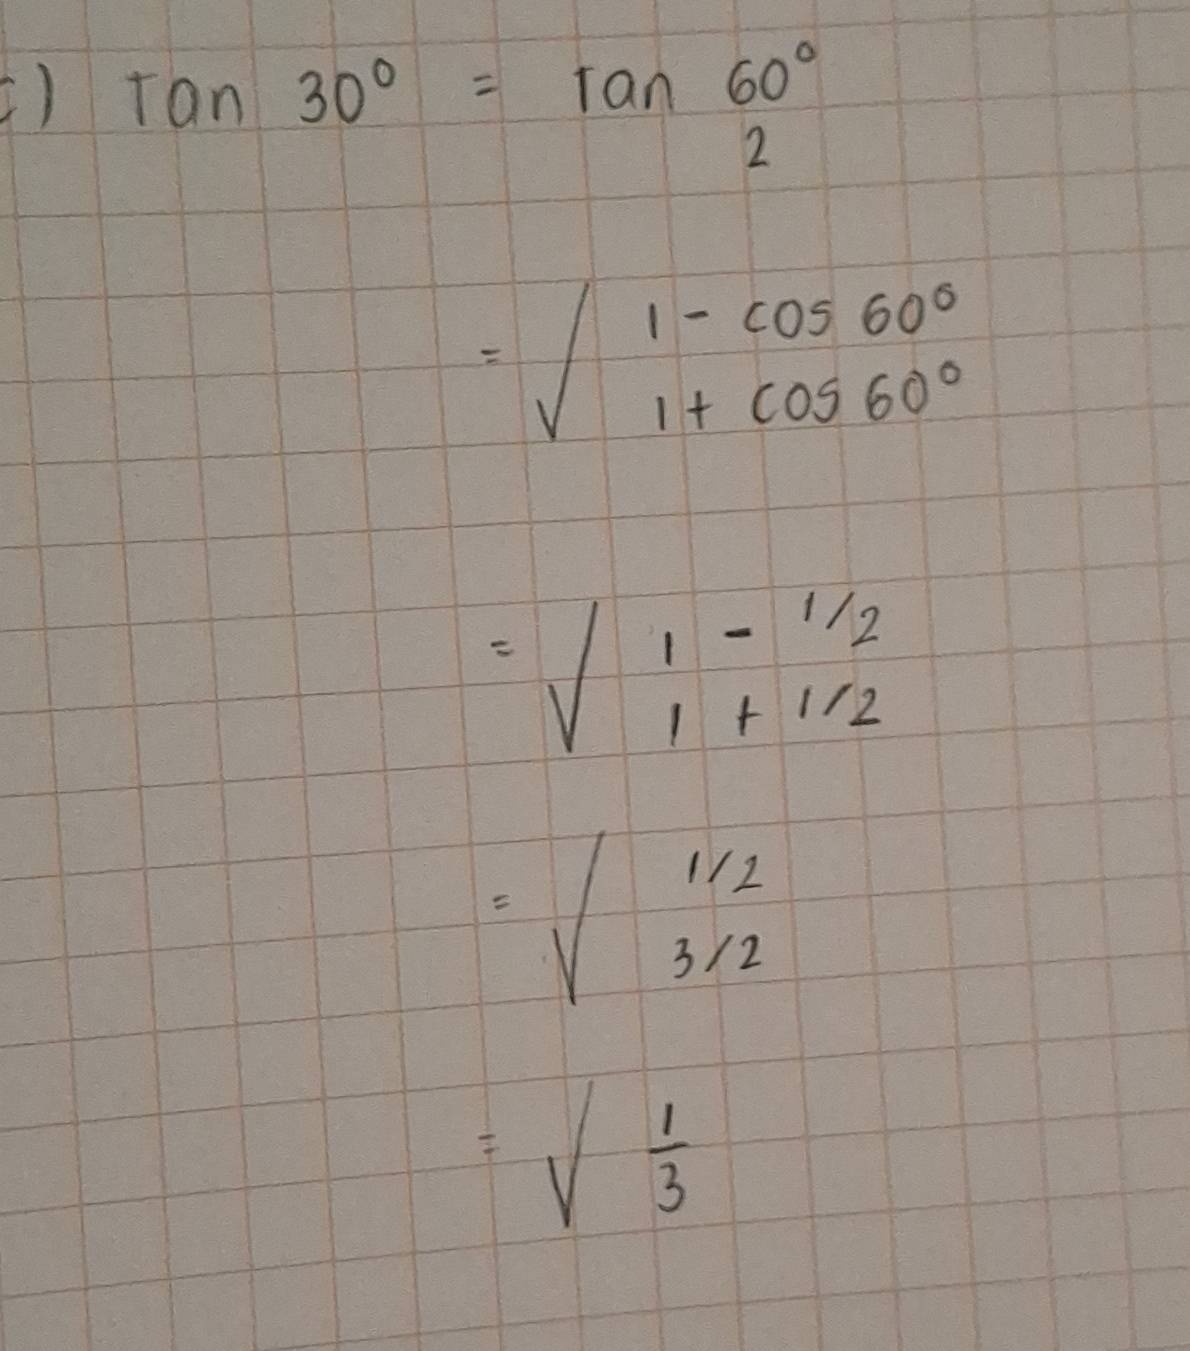 c) Tan 30° = Tan 60°
2
= √ 1 - cos 60°
1 + cos 60°
= √ 1 - 1/2
1 + 1/2
= √ 1/2
3/2
= √ 1
3